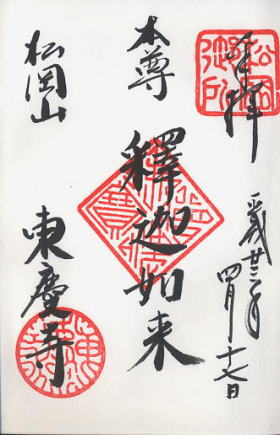 奉拝
平成 四月十七日
本尊
釋迦如来
松岡山
東慶寺
松岡御所